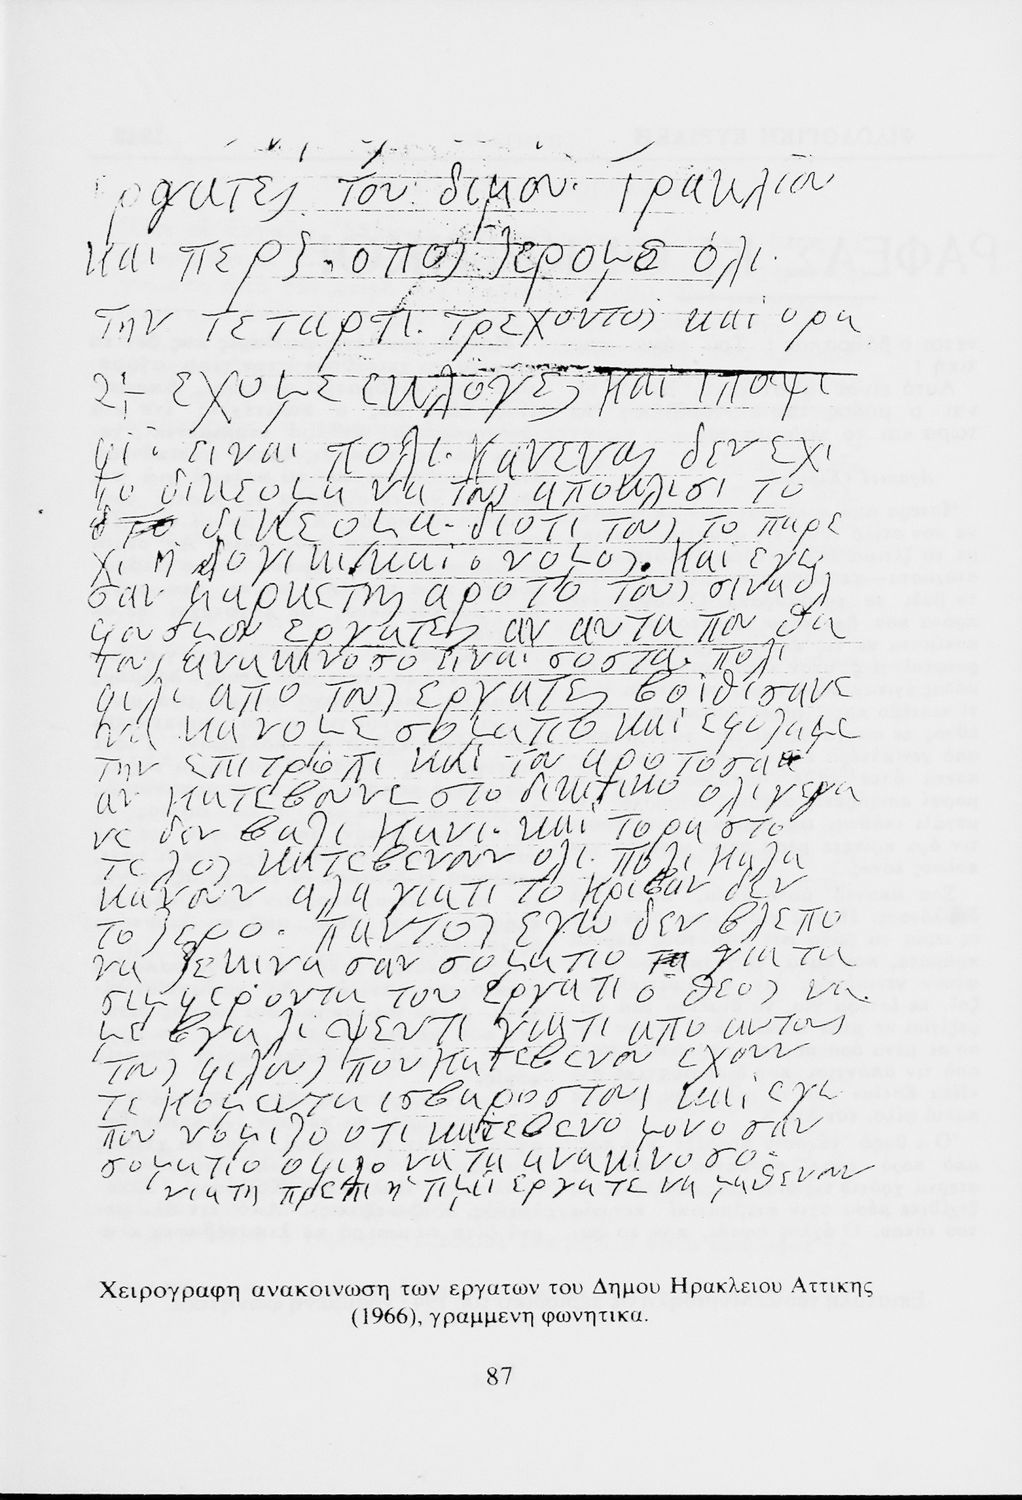 εργατες του διμου. Ιρακλιου
και περξ. οπος ξερομε όλι.
την τεταρτι. τρεχοντος και ορα
2- εχομε εκλογες και ιποψι
φιι ειναι πολι. κανενας δεν εχι
το δικεομα να τους αποκλισι το
δικεομα. διοτι τους το παρε
χι η λογικι. και ο νομος. και εγω
σαν μαρκετης αροτο τους σιναδλ
φους μου εργατες αν αυτα που θα
τους ανακινοσο ειναι σοστα. πολι
φιλι απο τους εργατες βοιθισανε
να κανομε σοματιο και εφιλαμε
την επιτροπι και τον αροτοσα
αν κατεβουνε στο δικιτικο ολι γεμα
νε δεν βαλι κανι. και τορα στο
τελος κατεβενουν ολι. πολι καλα
κανουν αλα γιατι το κριβαν δεν
το ξερο. παντος εγω δεν βλεπο
να ξεκινα σαν σοματιο για τα
σιμφεροντα του εργατι ο θεος να
με βγαλι ψεντι γιατι απο αυτους
τους φιλους που κατεβενου εχουν
τε κοματα ισβαρος τους και εγω
που νομιζο οτι κατεβενο μονο σαν
σοματιο οφιλο να τα ανακινοσο.
γιατη πρεπι η τιμιι εργατε να μαθενουν
Χειρογραφη ανακοινωση των εργατων του Δημου Ηρακλειου Αττικης
(1966), γραμμενη φωνητικα.
87